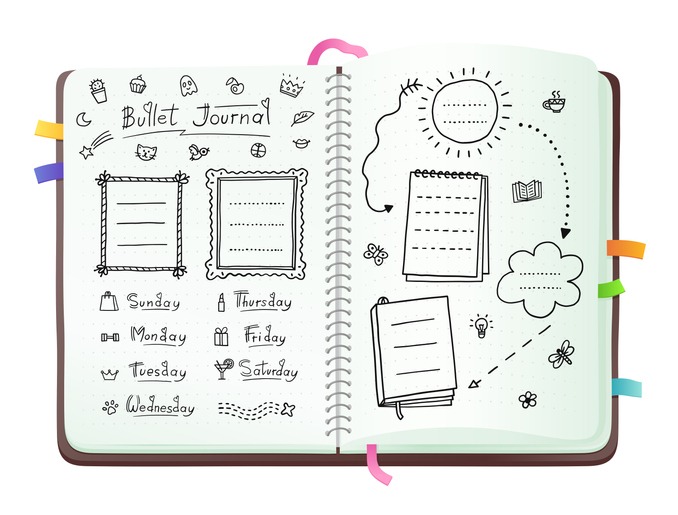 Bullet Journal
Sunday
Monday
Tuesday
Wednesday
Thursday
Friday
Saturday